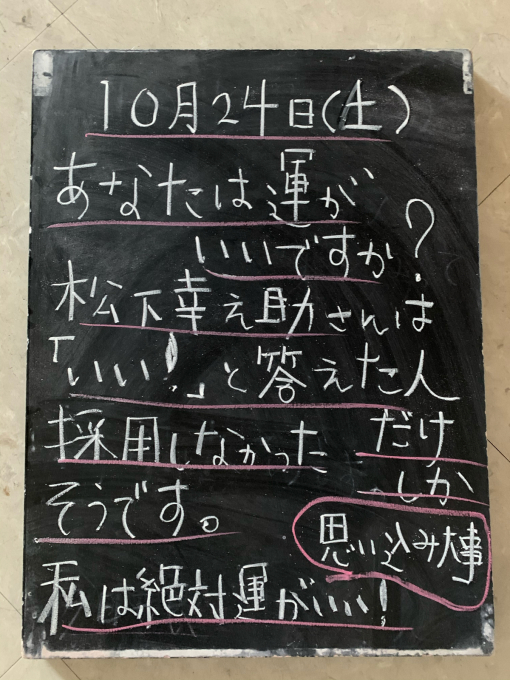 10月24日(土)
あなたは運が
いいですか?
松下幸之助さんは
「いい!」と答えた人
だけ
しか
採用しなかった
そうです。
思い込み大事
私は絶対運がいい!